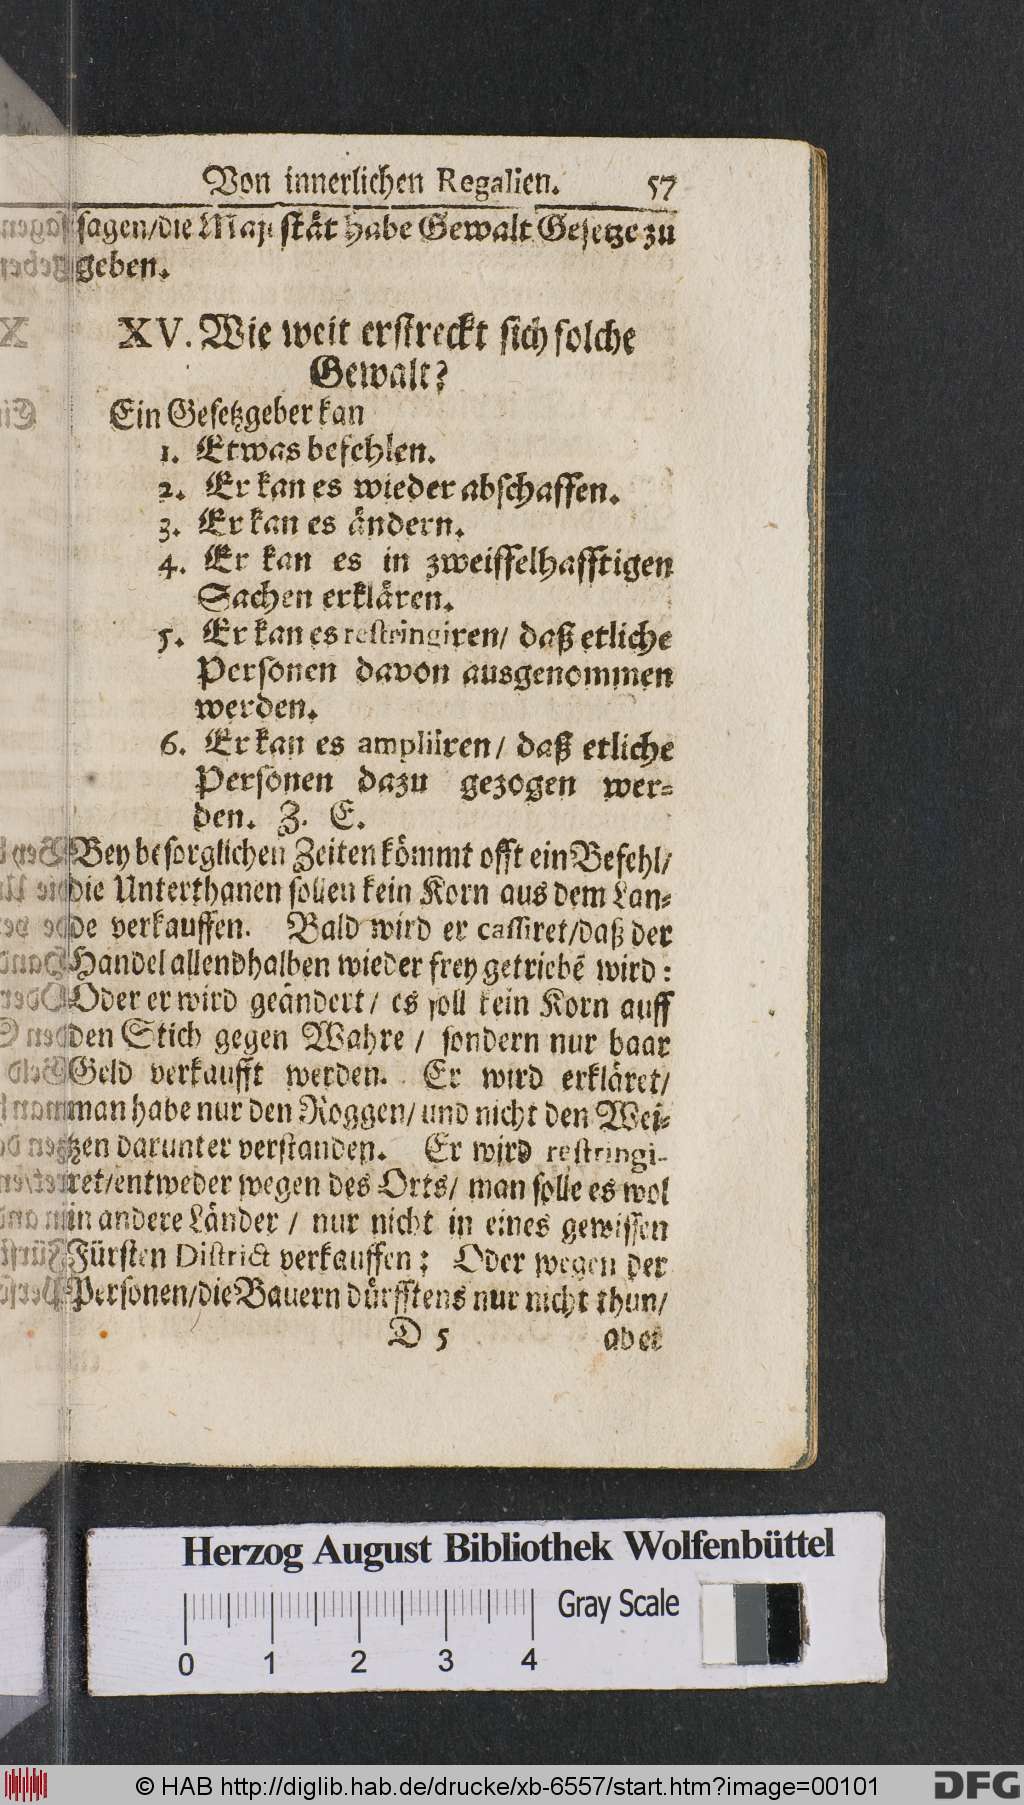 Von innerlichen Regalien. 57
sagen/die Majestät habe Gewalt Gesetze zu
geben.
XV. Wie weit erstreckt sich solche
Gewalt?
Ein Gesetzgeber kan
1. Etwas befehlen.
2. Er kan es wieder abschaffen.
3. Er kan es ändern.
4. Er kan es in zweiffelhafftigen
Sachen erklären.
5. Er kan es restringiren/ daß etliche
Personen davon ausgenommen
werden.
6. Er kan es ampliiren/ daß etliche
Personen dazu gezogen wer-
den. Z. E.
Bey besorglichen Zeiten kömmt offt ein Befehl/
die Unterthanen sollen kein Korn aus dem Lan-
de verkauffen. Bald wird er cassiret/daß der
Handel allendhalben wieder frey getriebē wird:
Oder er wird geändert/ es soll kein Korn auff
den Stich gegen Wahre / sondern nur baar
Geld verkaufft werden. Er wird erkläret/
man habe nur den Roggen/ und nicht den Wei-
tzen darunter verstanden. Er wird restringi-
ret/entweder wegen des Orts/ man solle es wol
in andere Länder / nur nicht in eines gewissen
Fürsten District verkauffen; Oder wegen der
Personen/die Bauern dürfftens nur nicht thun/
D 5 aber
Herzog August Bibliothek Wolfenbüttel
Gray Scale
0 1 2 3 4
© HAB http://diglib.hab.de/drucke/xb-6557/start.htm?image=00101
DFG